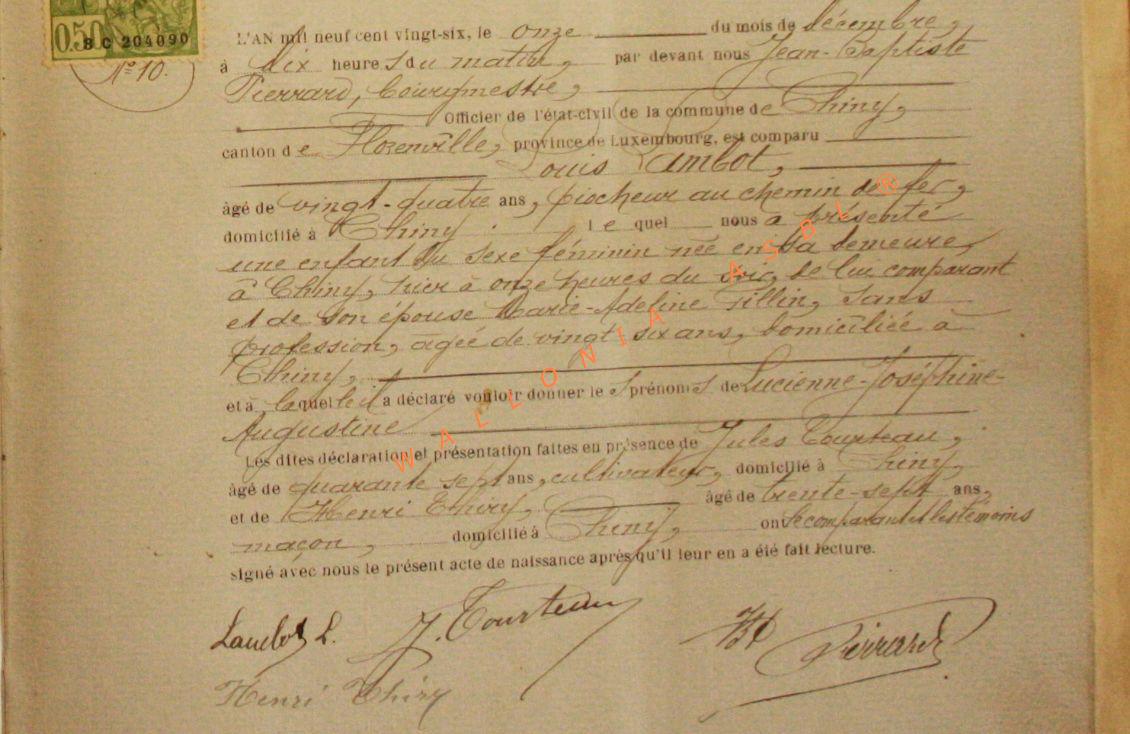 0.50
BC 204090
N° 10.
L'AN mil neuf cent vingt-six, le onze du mois de décembre,
à dix heures du matin, par devant nous Jean-Baptiste
Pierrard, bourgmestre,
Officier de l'état-civil de la commune de Chiny,
canton de Florenville, province de Luxembourg, est comparu
Louis Lambot,
âgé de vingt-quatre ans, piocheur au chemin de fer,
domicilié à Chiny, lequel nous a présenté
une enfant du sexe féminin née en sa demeure,
à Chiny, hier à onze heures du soir, de lui comparant
et de son épouse Marie-Adeline Fillin, sans
profession, agée de vingt six ans, domiciliée à
Chiny,
et à laquelle il a déclaré vouloir donner les prénoms de Lucienne-Joséphine-
Augustine
Les dites déclaration et présentation faites en présence de Jules Tourteau,
âgé de quarante sept ans, cultivateur, domicilié à Chiny,
et de Henri Thiry, âgé de trente-sept ans,
maçon, domicilié à Chiny, ont le comparant et les témoins
signé avec nous le présent acte de naissance après qu'il leur en a été fait lecture.
Lambot L. J. Tourteau JB Pierrard
Henri Thiry
WALLONIA ASBL ®